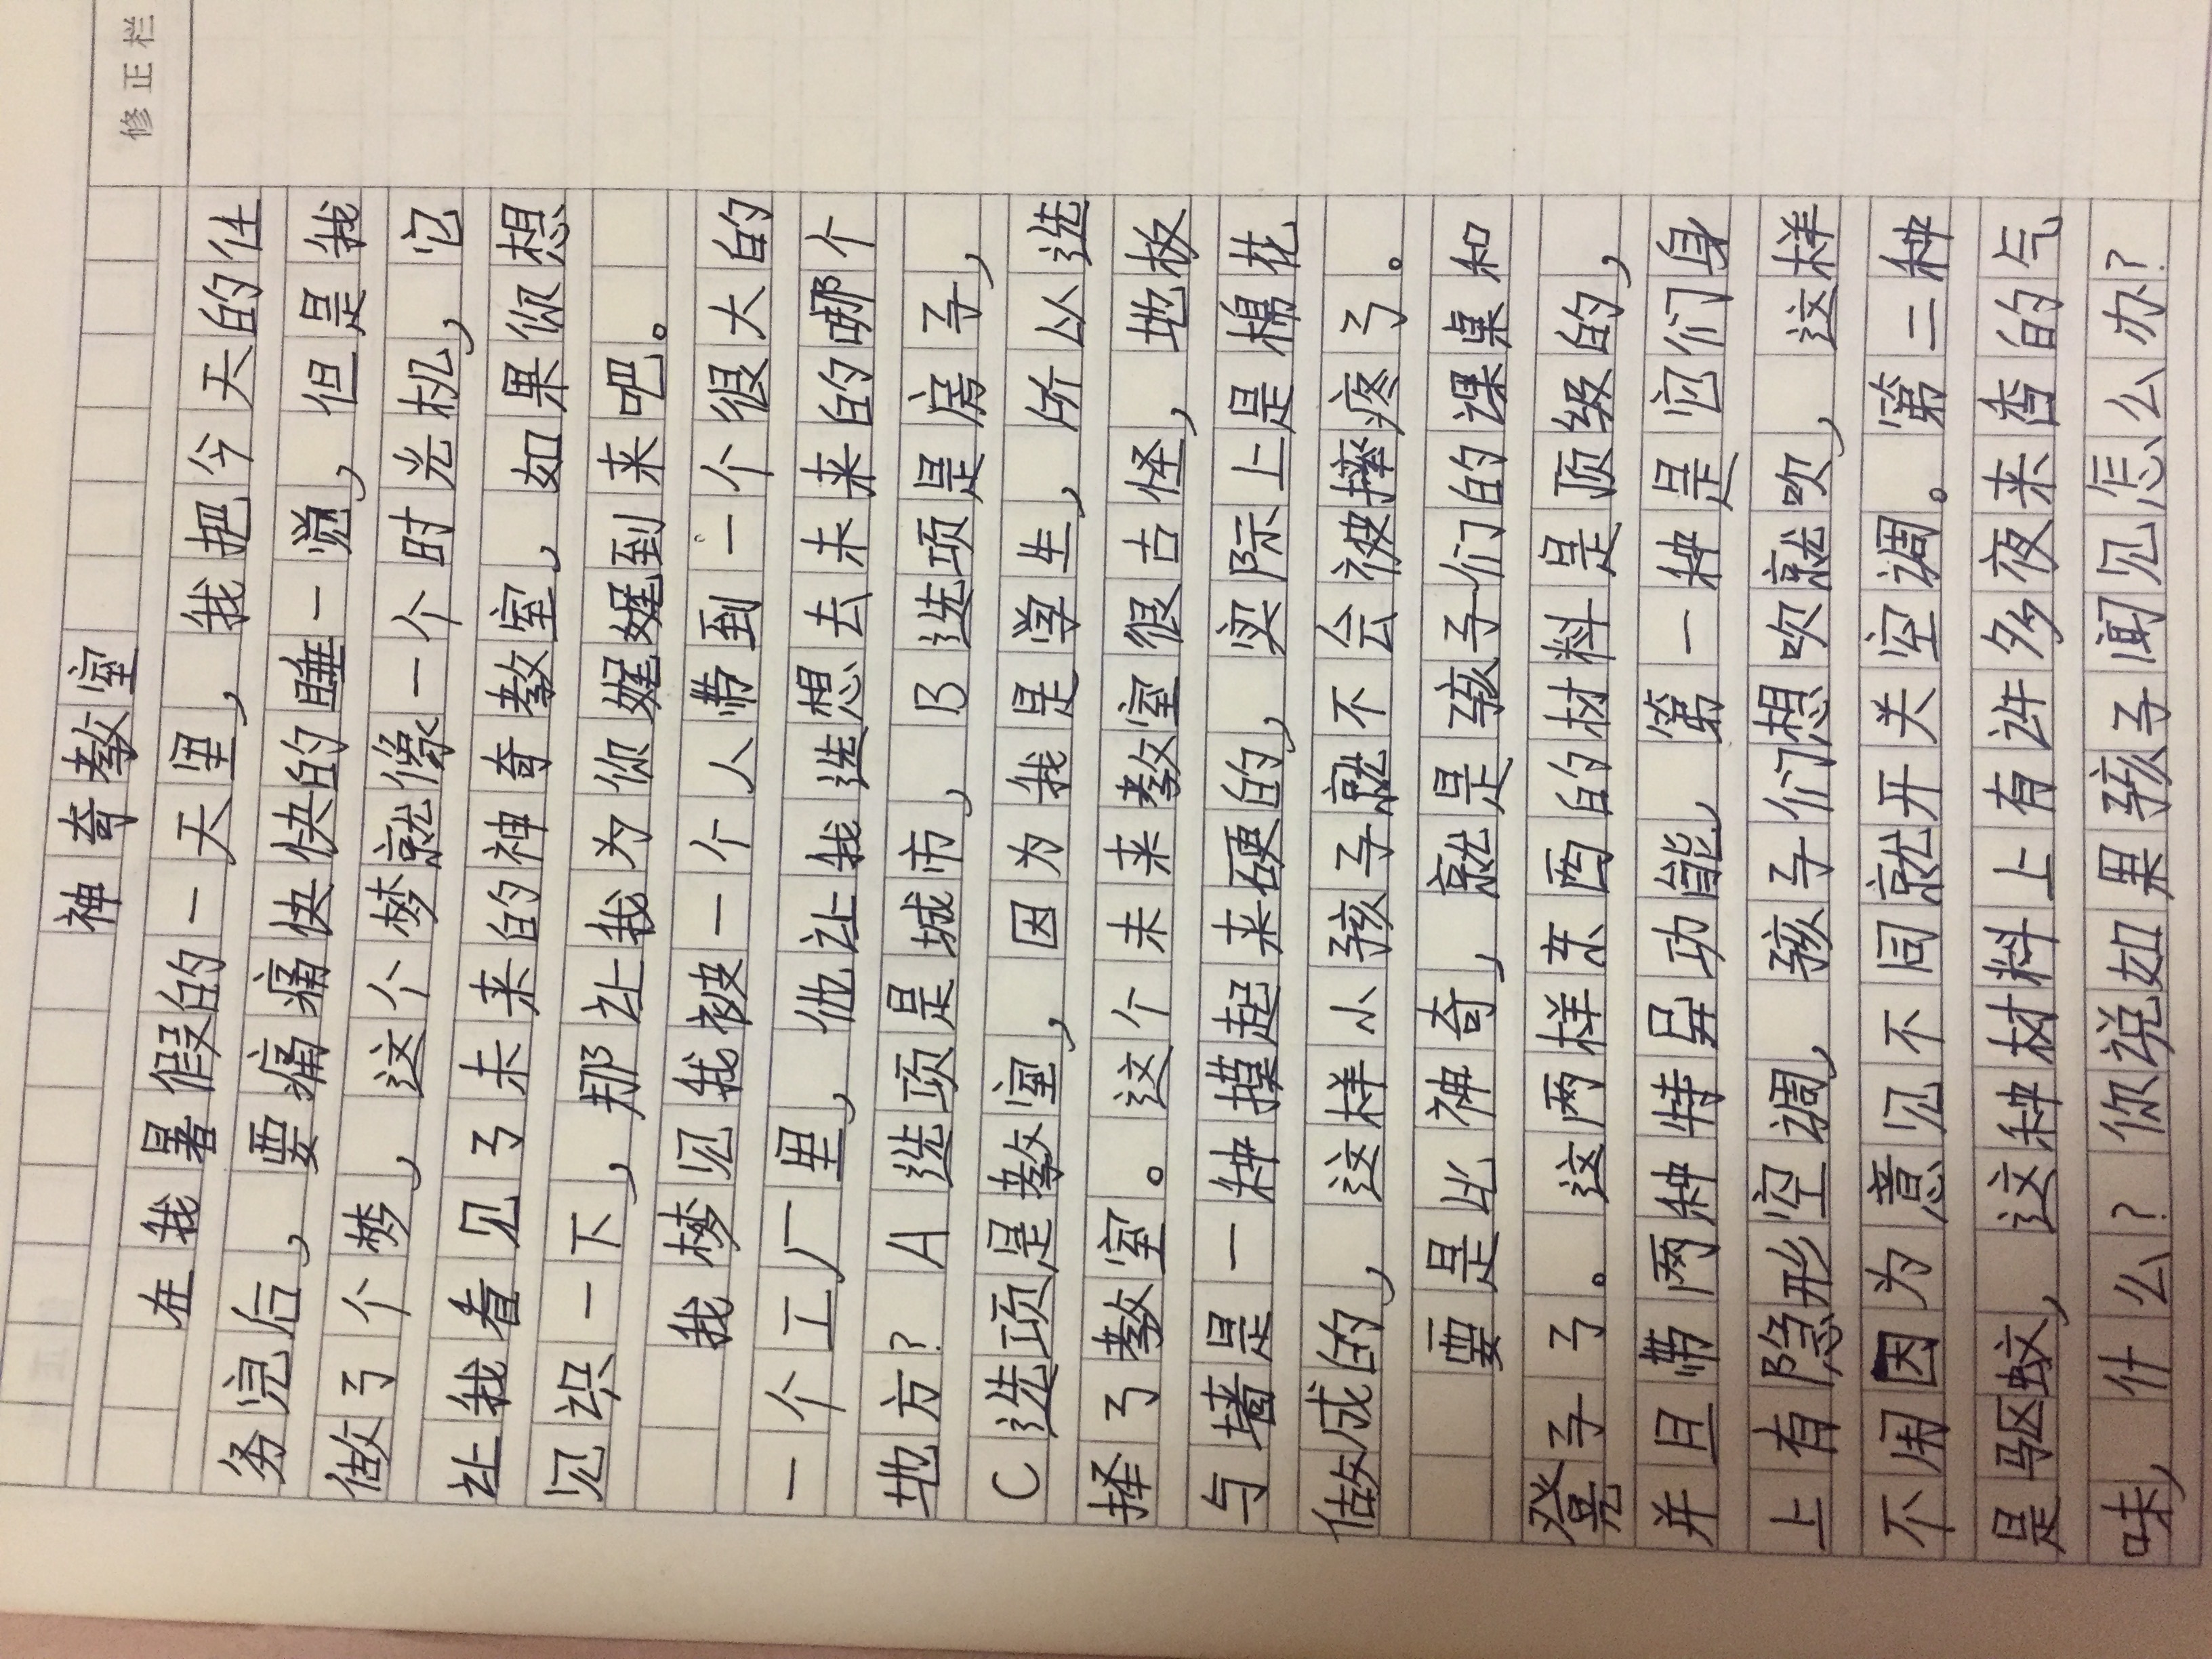 修正栏
神奇教室
在我暑假的一天里，我把今天的任
务完后，要痛痛快快的睡一觉，但是我
做了个梦，这个梦就像一个时光机，它
让我看见了未来的神奇教室，如果你想
见识一下，那让我为你娓娓到来吧。
我梦见我被一个人带到一个很大的
一个工厂里，他让我选想去未来的哪个
地方？A选项是城市，B选项是房子，
C选项是教室，因为我是学生，所以选
择了教室。这个未来教室很古怪，地板
与墙是一种摸起来硬的，实际上是棉花
做成的，这样小孩子就不会被摔疼了。
要是比神奇，就是孩子们的课桌和
凳子了。这两样东西的材料是顶级的，
并且带两种特异功能，第一种是它们身
上有隐形空调，孩子们想吹就吹，这样
不用因为意见不同就开关空调。第二种
是驱蚊，这种材料上有许多夜来香的气
味，什么？你说如果孩子闻见怎么办？